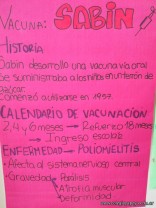 VACUNA: SABIN
HISTORIA
Sabin desarrollo una vacuna vía oral
Se suministraba a los niños en un terrón de
azúcar.
Comenzó a utilizarse en 1957.
CALENDARIO DE VACUNACIÓN
2, 4 y 6 meses → Refuerzo 18 meses
Ingreso escolar
ENFERMEDAD → POLIOMIELITIS
• Afecta al sistema nervioso central
• Gravedad Parálisis
Atrofia muscular
Deformidad